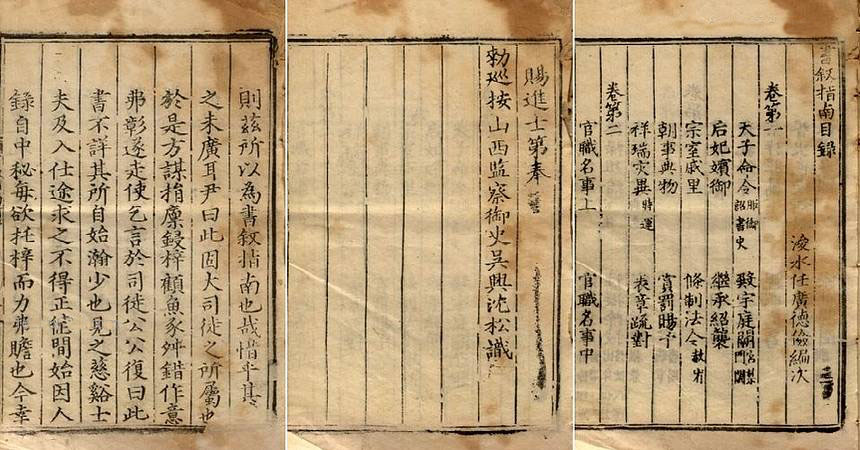 則茲所以為書敘指南也哉惜乎其
之未廣耳尹曰此固大司徒之所屬也
於是方謀指廪鋟梓顧魚豕舛錯作意
弗彰遂走使乞言於司徒公公復曰此
書不詳其所自始瀚少也見之慈谿士
夫及入仕途求之不得正徳間始因人
錄自中秘每欲托梓而力弗贍也今幸
賜進士第奉
勅巡按山西監察御史吳興沈松識
書敘指南目錄
浚水任廣德儉編次
卷第一
天子命令 詔書 殿宇庭闕 宮禁門闌
后妃嬪御 繼承紹襲
宗室戚里 條制法令 赦宥
朝事典物 賞罰賜予
祥瑞灾異 時運 表章疏對
卷第二
官職名事上 官職名事中